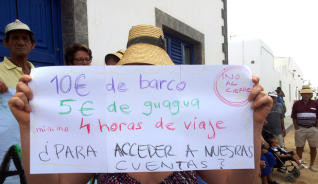 10€ de barco
¡NO AL CIERRE!
5€ de guagua
mínimo 4 horas de viaje
¿PARA ACCEDER A NUESRAS
CUENTAS?